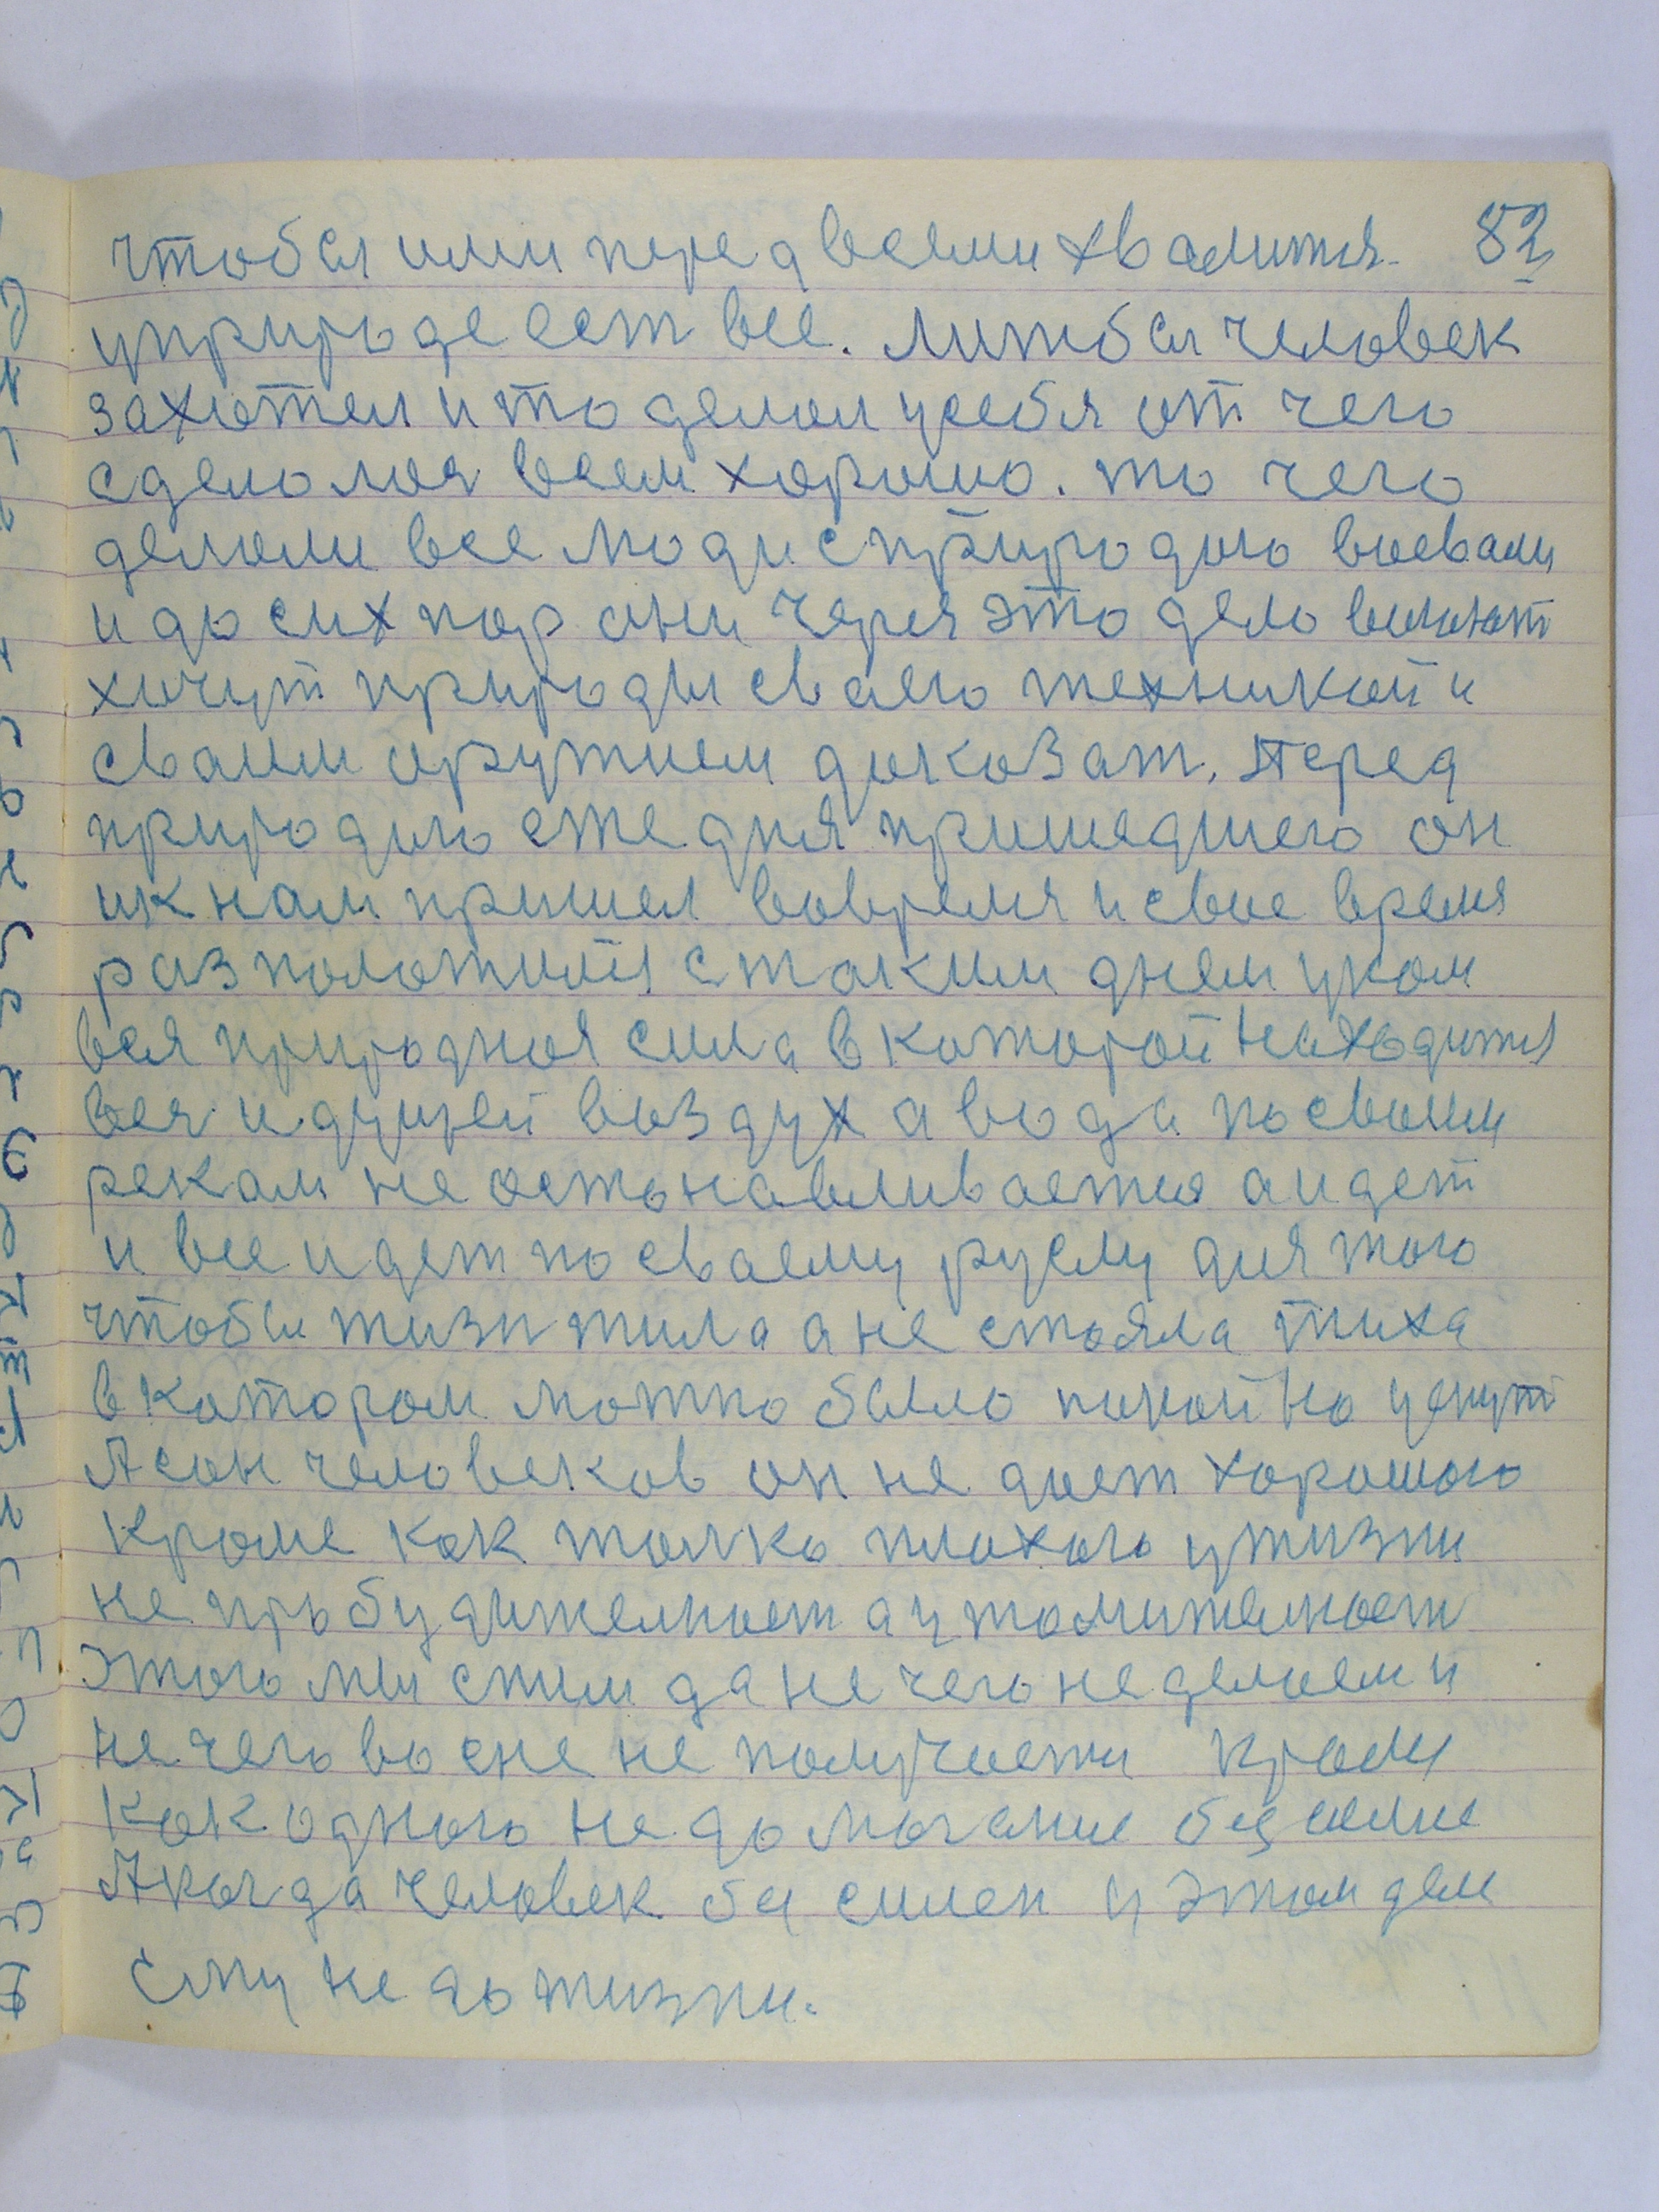 чтобы ими перед всеми хвалится. 82
уприроде ест все. Лижбы человек
захотел и то делал усебя от чего
сделолоя всем хорошо. то чего
делоли все люди сприродою воевали
и до сих пор они через это дело воюют
хочут природы сваею техникой и
сваим оружием доказат. Перед
природою еже дня пришедшего он
ик нам пришел вовремя и свое время
разположился с таким днем уком
вся природная сила в которой находится
вся идущей воздух а вода посвоим
рекам не остонавливается а идет
и все идет по сваему руслу для того
чтобы жизн жила а не стояла тиха
в котором можно было покойно уснут
А сон человеков он не дает хорошого
кроме как толко плохого ужизни
не пробудителност а утомителност
этого мы спим да не чего неделаем и
не чего во сне не получаети кроми
как одного не домогание бузсилие
А когда человек бу силен у этом деле
ему не до жизни.